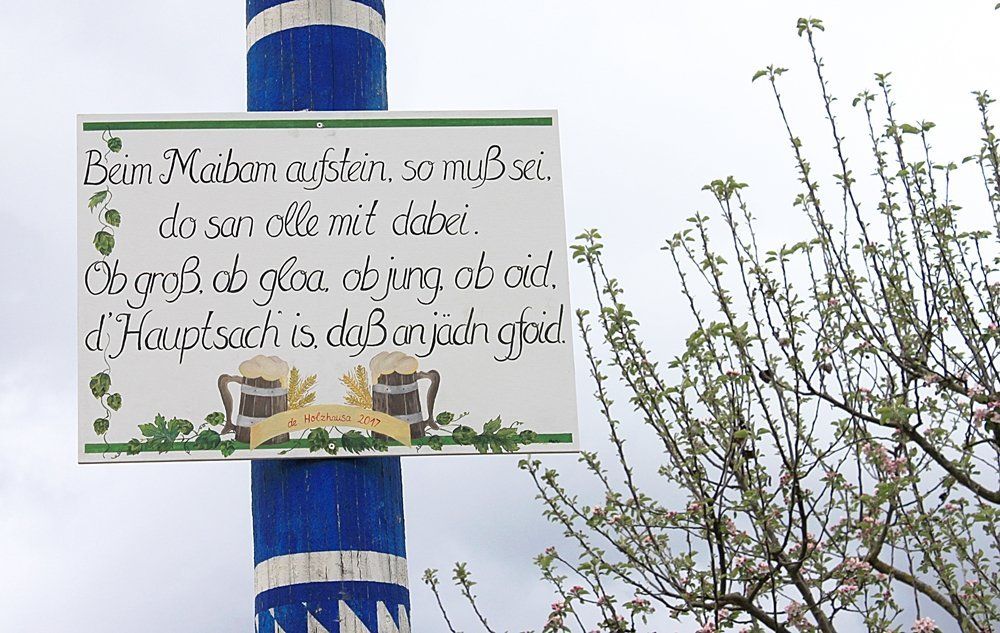 Beim Maibam aufstein, so muß sei,
do san olle mit dabei.
Ob groß, ob gloa, ob jung, ob oid,
d'Hauptsach is, daß an jädn gfoid.
de Holzhausa 2017